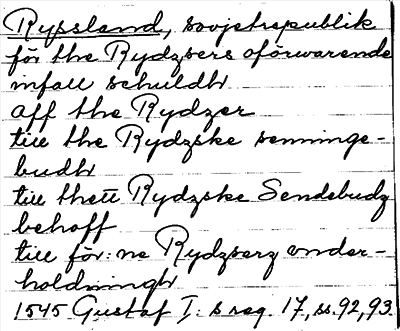 Ryssland, sovjetrepublik
för the Rydzsers oförwarende
infall schuldh
aff the Rydzer
till the Rydzske senninge-
budh
till thett Rydzske Sendebudz
behoff
till för:ne Rydzserz onder-
holdningh
1545 Gustaf I:s reg. 17, ss. 92, 93.